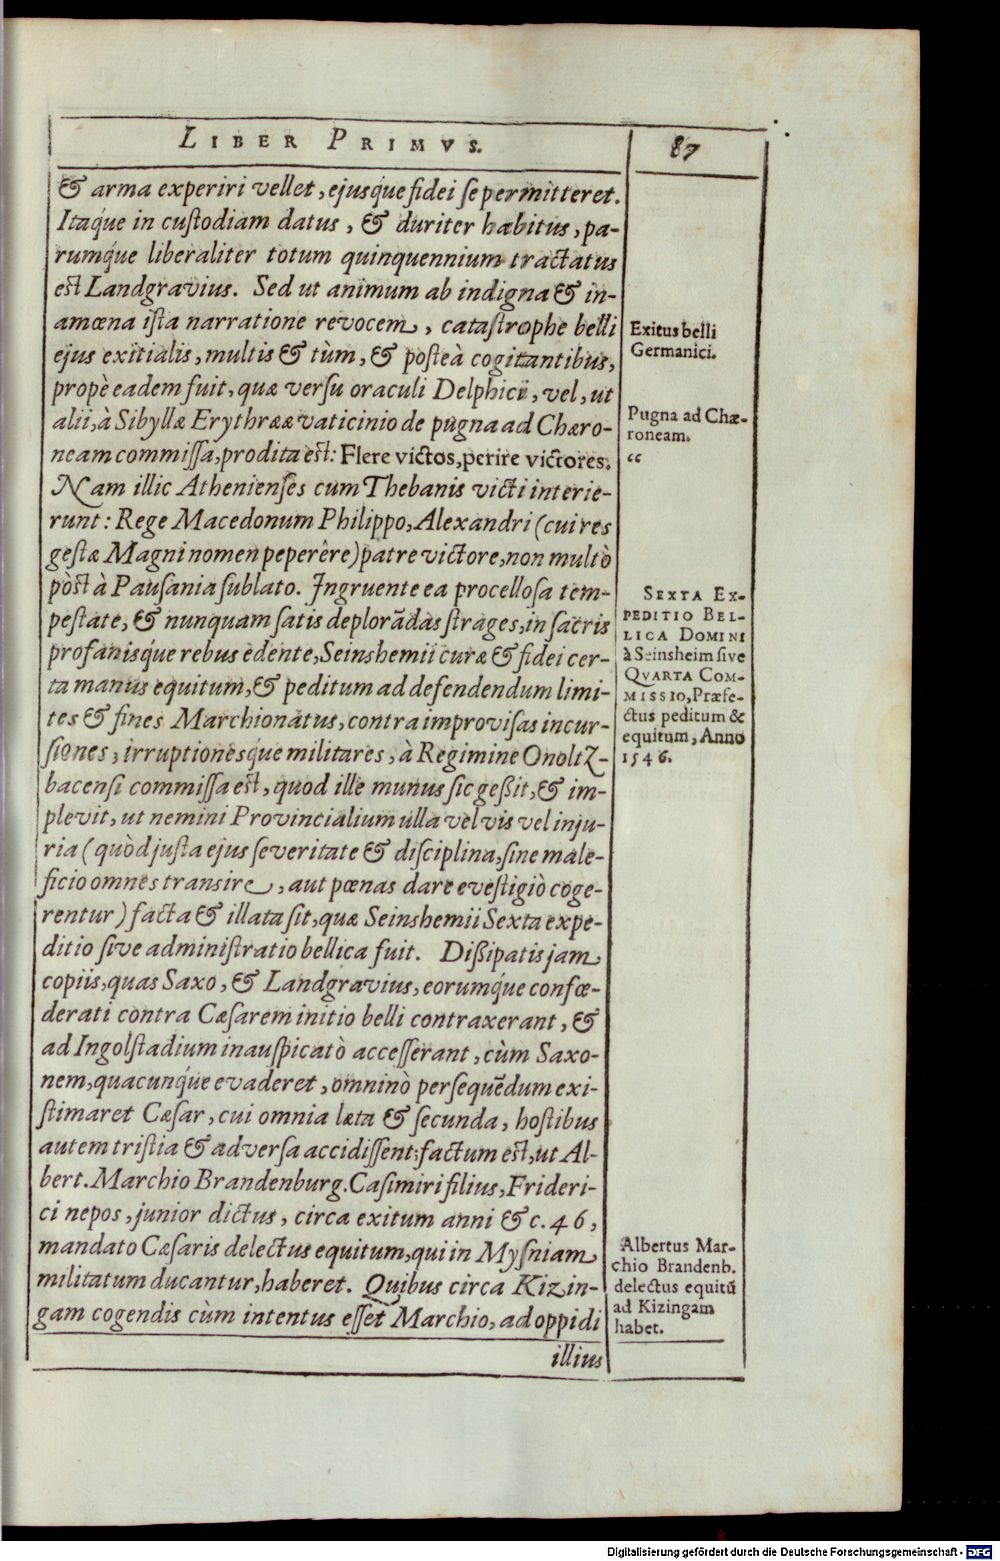 LIBER PRIMVS.
87
& arma experiri vellet, ejusq́ue fidei se permitteret.
Itaq́ue in custodiam datus, & duriter habitus, pa-
rumq́ue liberaliter totum quinquennium tractatus
est Landgravius. Sed ut animum ab indigna & in-
amœna ista narratione revocem, catastrophe belli
ejus exitialis, multis & tùm, & posteà cogitantibus,
propè eadem fuit, quæ versu oraculi Delphici, vel, ut
alii, à Sibyllæ Erythrææ vaticinio de pugna ad Chæro-
neam commissa, prodita est: Flere victos, perire victores.
Nam illic Athenienses cum Thebanis victi interie-
runt: Rege Macedonum Philippo, Alexandri (cui res
gestæ Magni nomen peperêre) patre victore, non multò
pòst à Pausania sublato. Ingruente ea procellosa tem-
pestate, & nunquam satis deplorãdas strages, in sacris
profanisq́ue rebus edente, Seinshemii curæ & fidei cer-
ta manus equitum, & peditum ad defendendum limi-
tes & fines Marchionatus, contra improvisas incur-
siones, irruptionesq́ue militares, à Regimine Onoltz-
bacensi commissa est, quod ille munus sic geßit, & im-
plevit, ut nemini Provincialium ulla vel vis vel inju-
ria (quòd justa ejus severitate & disciplina, sine male-
ficio omnes transire, aut pœnas dare evestigiò coge-
rentur) facta & illata sit, quæ Seinshemii Sexta expe-
ditio sive administratio bellica fuit. Dißipatis jam
copiis, quas Saxo, & Landgravius, eorumq́ue confœ-
derati contra Cæsarem initio belli contraxerant, &
ad Ingolstadium inauspicatò accesserant, cùm Saxo-
nem, quacunq́ue evaderet, omninò persequẽdum exi-
stimaret Cæsar, cui omnia læta & secunda, hostibus
autem tristia & adversa accidissent; factum est, ut Al-
bert. Marchio Brandenburg. Casimiri filius, Frideri-
ci nepos, junior dictus, circa exitum anni &c. 46,
mandato Cæsaris delectus equitum, qui in Mysniam
militatum ducantur, haberet. Quibus circa Kizin-
gam cogendis cùm intentus esset Marchio, ad oppidi
illius
Exitus belli
Germanici.
Pugna ad Chæ-
roneam.
“
SEXTA EX-
PEDITIO BEL-
LICA DOMINI
à Seinsheim sive
QVARTA COM-
MISSIO, Præfe-
ctus peditum &
equitum, Anno
1546.
Albertus Mar-
chio Brandenb.
delectus equitũ
ad Kizingam
habet.
Digitalisierung gefördert durch die Deutsche Forschungsgemeinschaft - DFG